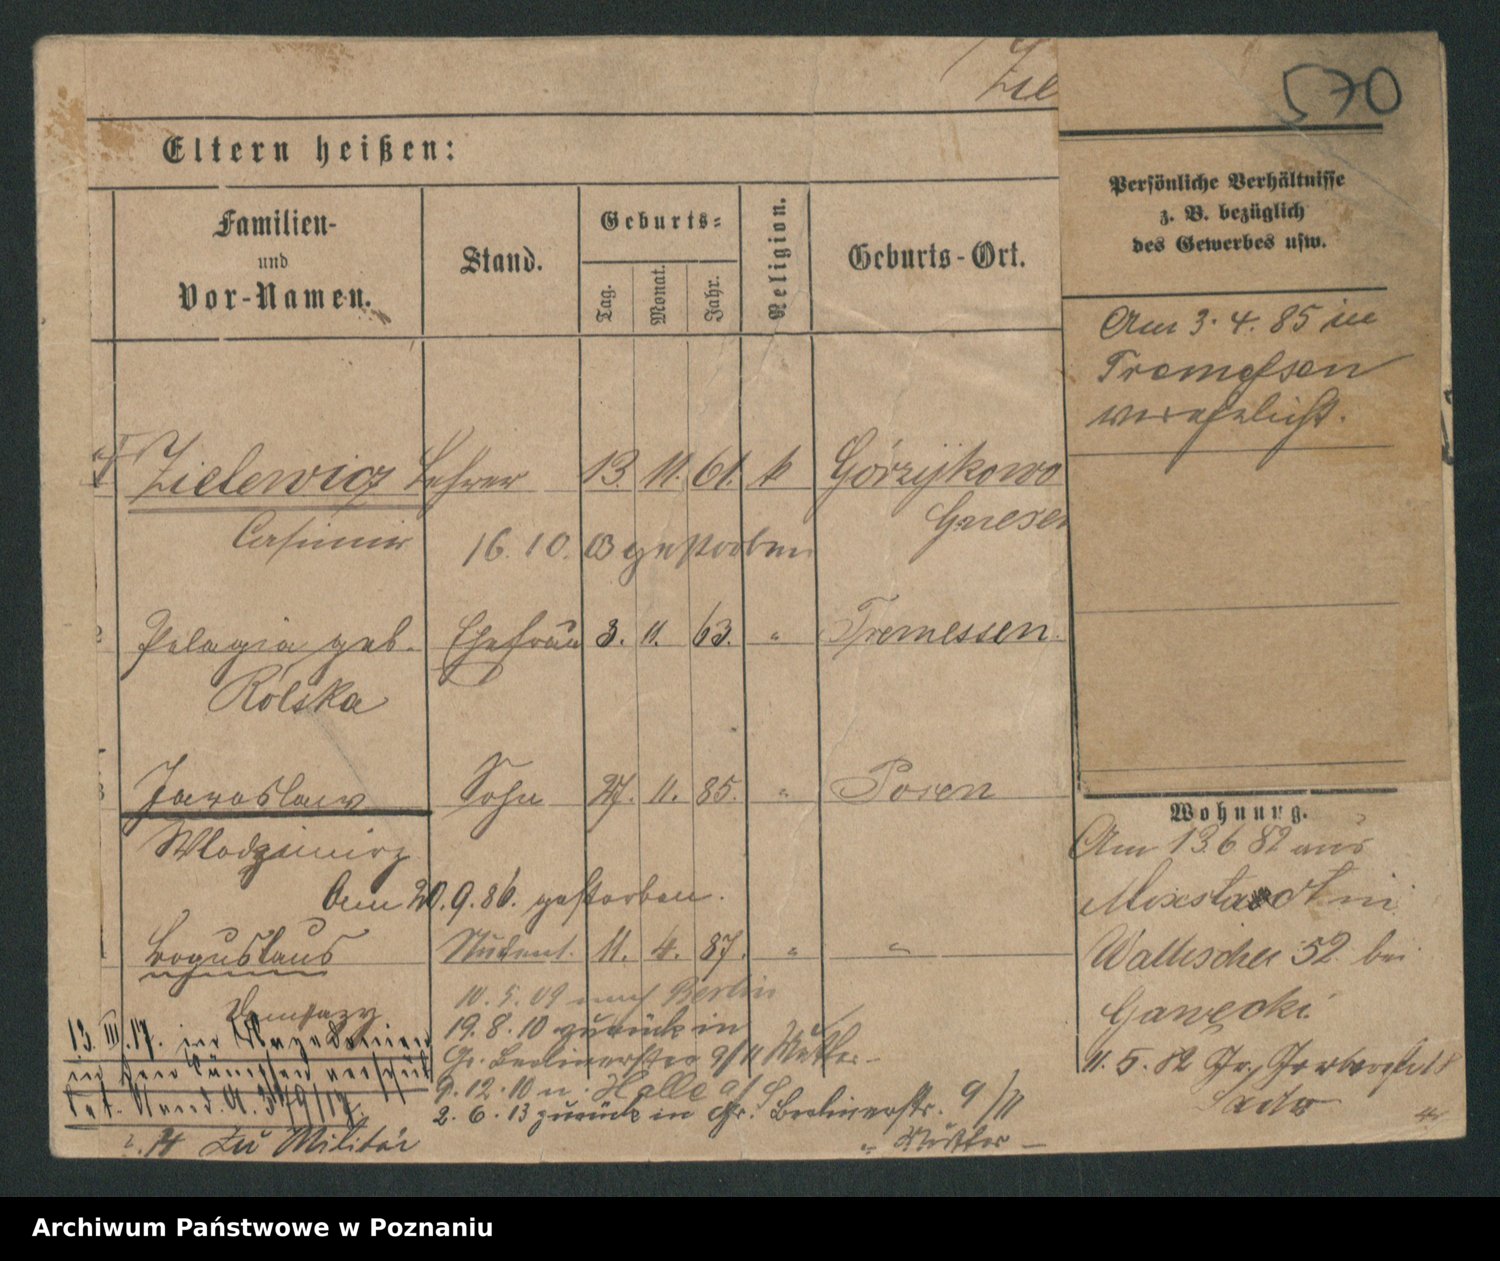 570
Eltern heißen:
Familien-
und
Vor-Namen.
Stand.
Geburts-
Tag.
Monat.
Jahr.
Religion.
Geburts-Ort.
Persönliche Verhältnisse
z. B. bezüglich
des Gewerbes usw.
Am 3. 4. 85 in
Tremessen
verehelicht.
Zielewicz Lehrer 13. 11. 61. k Górzykowo
Casimir 16. 10. 03 gestorben Gnesen
Pelagia geb. Ehefrau 3. 11. 63. " Tremessen.
Rólska
Jaroslaw Sohn 27. 11. 85. " Posen
Wlodzimirz
Am 20. 9. 86. gestorben.
Boguslaus Student. 11. 4. 87. " "
10. 5. 09 nach Berlin
19. 8. 10 zurück in
Gr. Berlinerstr 9/11 Mutter
9. 12. 10 n. Halle a/S
2. 6. 13 zurück in Gr. Berlinerstr. 9/11
" Mutter
13. III. 17. in
zu Militär
Wohnung.
Am 13 6 82 aus
Mixstadt in
Wallischei 52 bei
Gawecki
11. 5. 82 Gr. Gerberstr 18